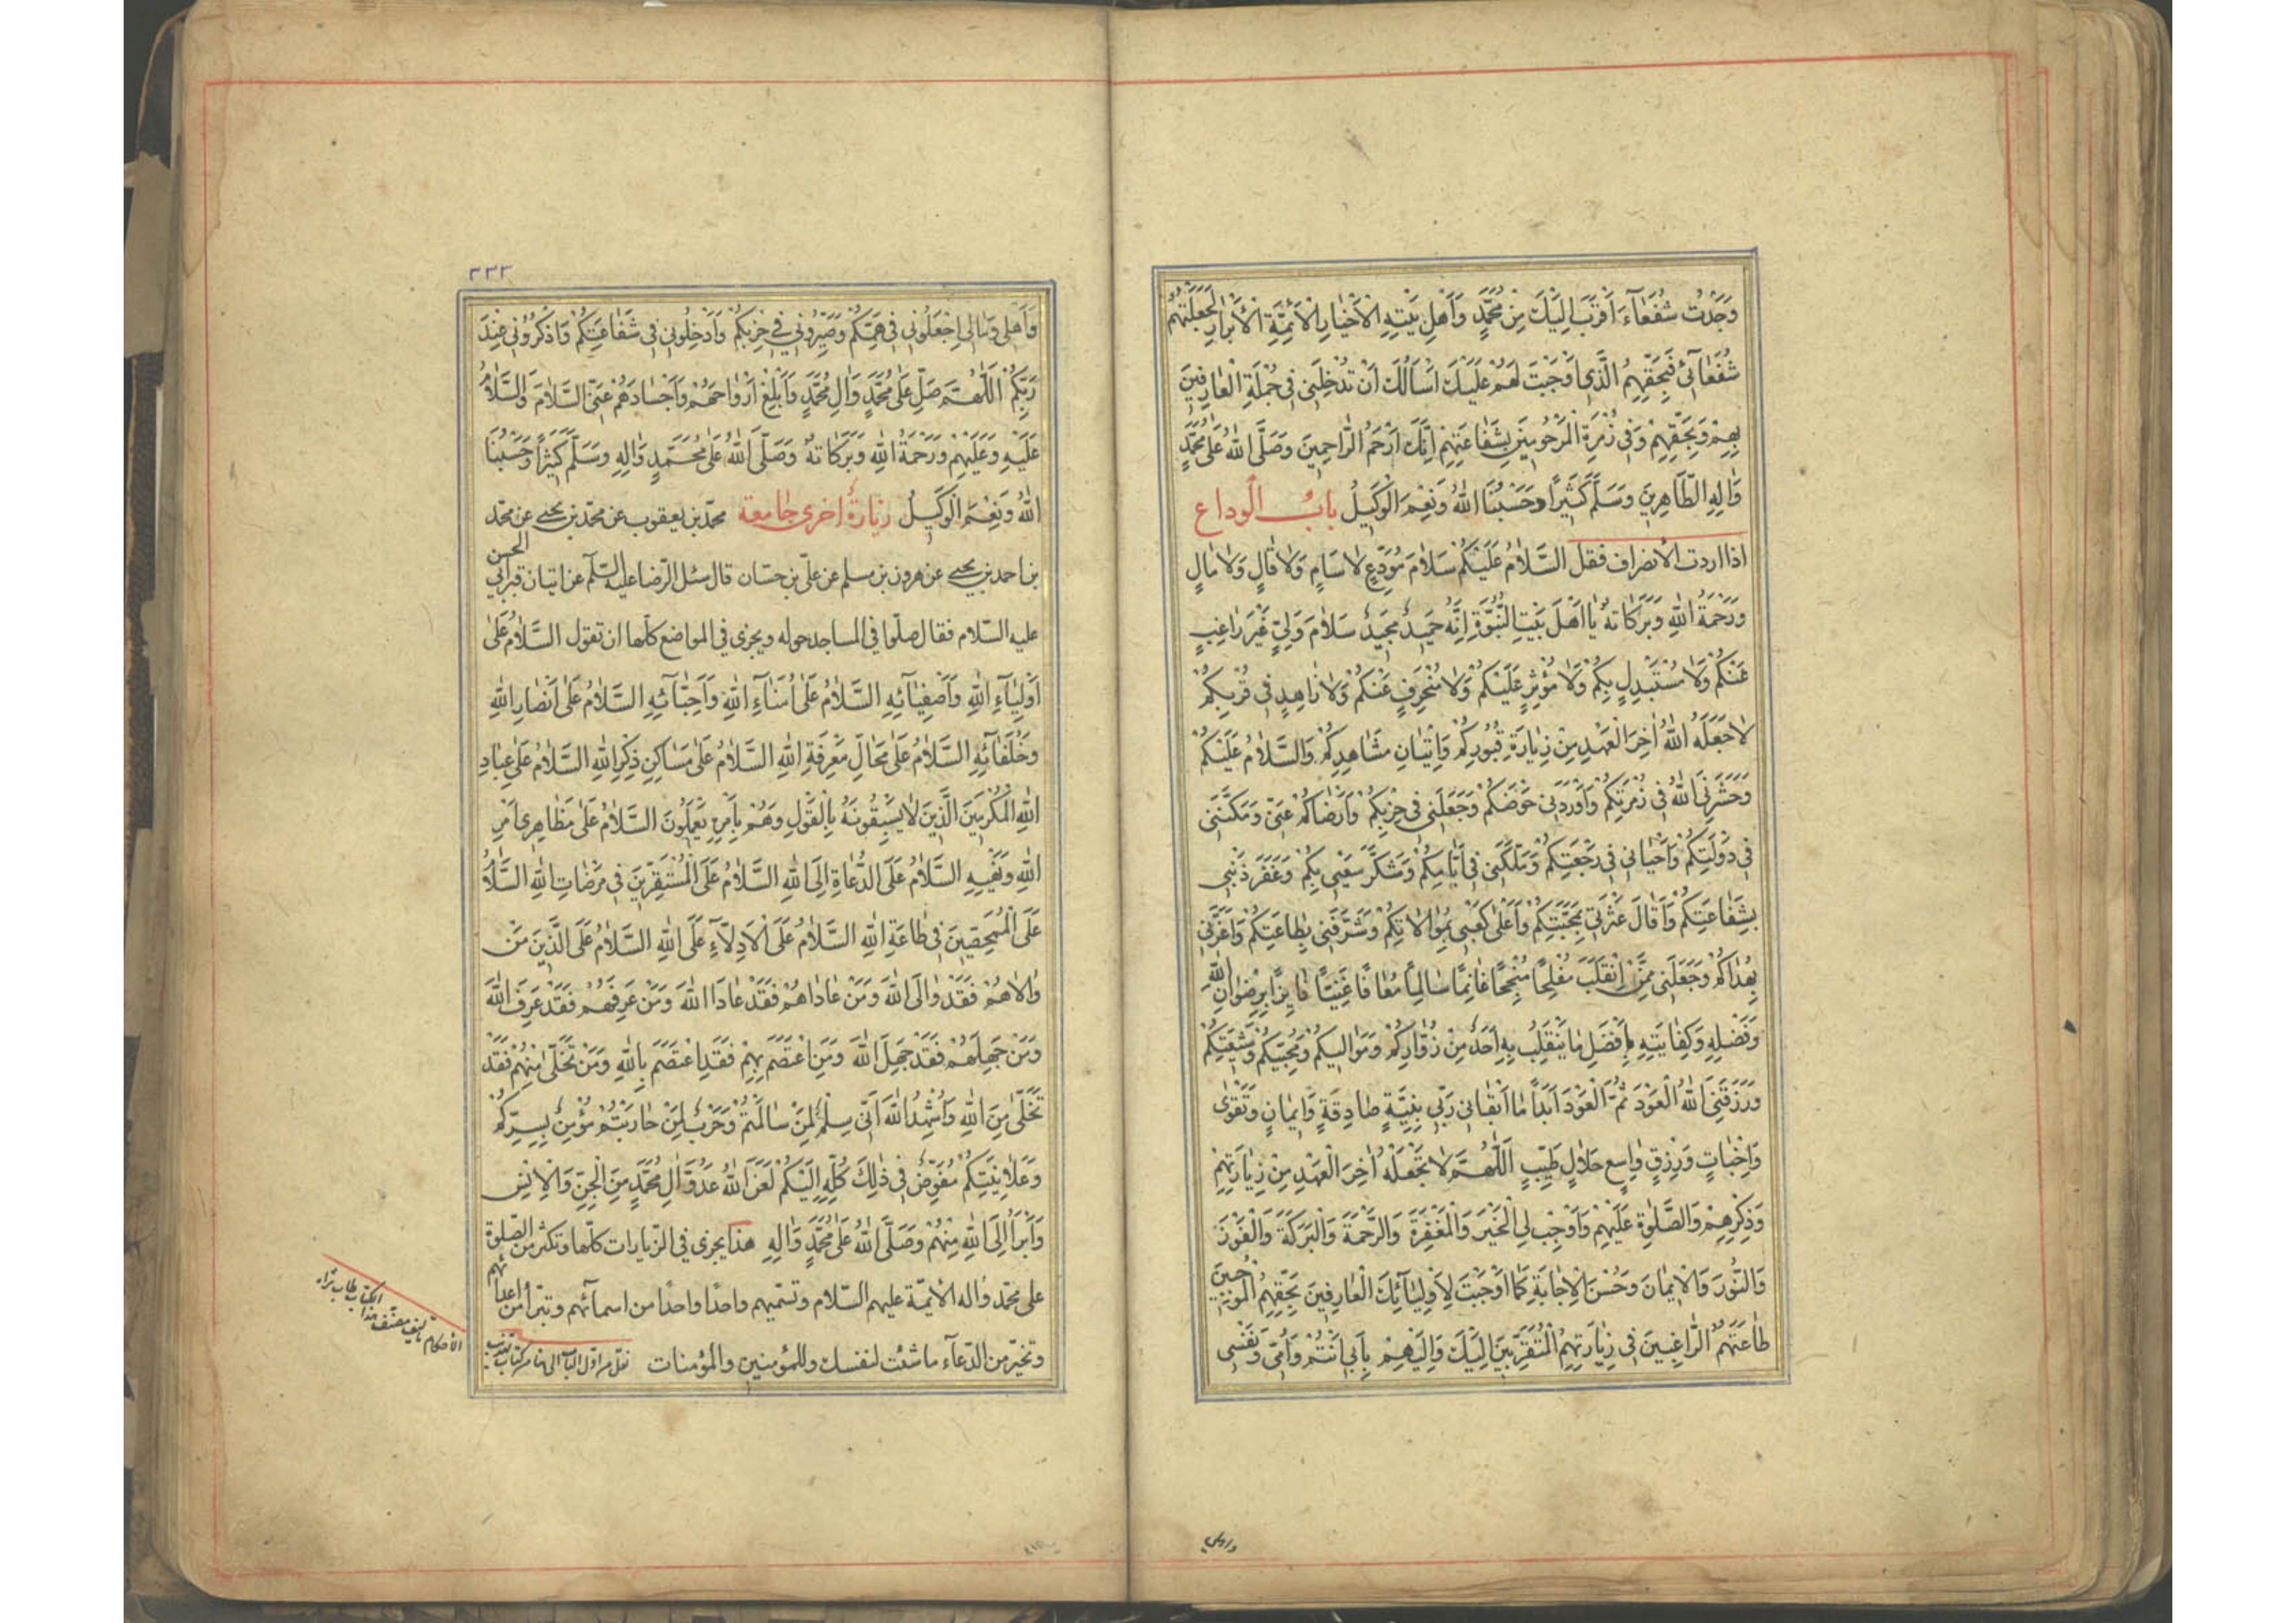 وَجَدْتُ شُفَعٰآءَ اَقْرَبَ اِلَيْكَ مِنْ مُحَمَّدٍ وَاَهْلِ بَيْتِهِ الْاَخْيٰارِ الْاَئِمَّةِ الْاَبْرٰارِ لَجَعَلْتَهُمْ
شُفَعٰائى فَبِحَقِّهِمُ الَّذى اَوْجَبْتَ لَهُمْ عَلَيْكَ اَسْاَلُكَ اَنْ تُدْخِلَنى فى جُمْلَةِ الْعٰارِفينَ
بِهِمْ وَبِحَقِّهِمْ وَفى زُمْرَةِ الْمَرْحُومينَ بِشَفٰاعَتِهِمْ اِنَّكَ اَرْحَمُ الرّٰاحِمينَ وَصَلَّى اللهُ عَلىٰ مُحَمَّدٍ
وَاٰلِهِ الطّٰاهِرينَ وَسَلَّمَ كَثيرًا وَحَسْبُنَا اللهُ وَنِعْمَ الْوَكيلُ بابُ الْوداع
اذا اردت الانصراف فقل السَّلٰامُ عَلَيْكُمْ سَلٰامَ مُوَدِّعٍ لٰا سَاٰمٍ وَلٰا قٰالٍ وَلٰا مٰالٍ
وَرَحْمَةُ اللهِ وَبَرَكٰاتُهُ يٰا اَهْلَ بَيْتِ النُّبُوَّةِ اِنَّهُ حَميدٌ مَجيدٌ سَلٰامَ وَلِىٍّ غَيْرَ رٰاغِبٍ
عَنْكُمْ وَلٰا مُسْتَبْدِلٍ بِكُمْ وَلٰا مُؤْثِرٍ عَلَيْكُمْ وَلٰا مُنْحَرِفٍ عَنْكُمْ وَلٰا زٰاهِدٍ فى قُرْبِكُمْ
لٰا جَعَلَهُ اللهُ اٰخِرَ الْعَهْدِ مِنْ زِيٰارَةِ قُبُورِكُمْ وَاِتْيٰانِ مَشٰاهِدِكُمْ وَالسَّلٰامُ عَلَيْكُمْ
وَحَشَرَنِىَ اللهُ فى زُمْرَتِكُمْ وَاَوْرَدَنى حَوْضَكُمْ وَجَعَلَنى فى حِزْبِكُمْ وَاَرْضٰاكُمْ عَنّى وَمَكَّنَنى
فى دَوْلَتِكُمْ وَاَحْيٰانى فى رَجْعَتِكُمْ وَمَلَّكَنى فى اَيّٰامِكُمْ وَشَكَرَ سَعْيى بِكُمْ وَغَفَرَ ذَنْبى
بِشَفٰاعَتِكُمْ وَاَقٰالَ عَثْرَتى بِمَحَبَّتِكُمْ وَاَعْلىٰ كَعْبى بِمُوٰالٰاتِكُمْ وَشَرَّفَنى بِطٰاعَتِكُمْ وَاَعَزَّنى
بِهُدٰاكُمْ وَجَعَلَنى مِمَّنِ انْقَلَبَ مُفْلِحًا مُنْجِحًا غٰانِمًا سٰالِمًا مُعٰافًا غَنِيًّا فٰايِزًا بِرِضْوٰانِ اللهِ
وَفَضْلِهِ وَكِفٰايَتِهِ بِاَفْضَلِ مٰا يَنْقَلِبُ بِهِ اَحَدٌ مِنْ زُوّٰارِكُمْ وَمَوٰاليكُمْ وَمُحِبّيكُمْ وَشيعَتِكُمْ
وَرَزَقَنِىَ اللهُ الْعَوْدَ ثُمَّ الْعَوْدَ اَبَدًا مٰا اَبْقٰانى رَبّى بِنِيَّةٍ صٰادِقَةٍ وَايمٰانٍ وَتَقْوىٰ
وَاِخْبٰاتٍ وَرِزْقٍ وٰاسِعٍ حَلٰالٍ طَيِّبٍ اَللّٰهُمَّ لٰا تَجْعَلْهُ اٰخِرَ الْعَهْدِ مِنْ زِيٰارَتِهِمْ
وَذِكْرِهِمْ وَالصَّلٰوةِ عَلَيْهِمْ وَاَوْجِبْ لِى الْخَيْرَ وَالْمَغْفِرَةَ وَالرَّحْمَةَ وَالْبَرَكَةَ وَالْفَوْزَ
وَالنُّورَ وَالْايمٰانَ وَحُسْنَ الْاِجٰابَةِ كَمٰا اَوْجَبْتَ لِاَوْلِيٰآئِكَ الْعٰارِفينَ بِحَقِّهِمُ الْمُوجِبينَ
طٰاعَتَهُمْ الرّٰاغِبينَ فى زِيٰارَتِهِمُ الْمُتَقَرِّبينَ اِلَيْكَ وَاِلَيْهِمْ بِاَبى اَنْتُمْ وَاُمّى وَنَفْسى
واهلى
٣٣٣
وَاَهْلى وَمٰالى اِجْعَلُونى فى هَمِّكُمْ وَصَيِّرُونى فى حِزْبِكُمْ وَاَدْخِلُونى فى شَفٰاعَتِكُمْ وَاذْكُرُونى عِنْدَ
رَبِّكُمْ اَللّٰهُمَّ صَلِّ عَلىٰ مُحَمَّدٍ وَاٰلِ مُحَمَّدٍ وَاَبْلِغْ اَرْوٰاحَهُمْ وَاَجْسٰادَهُمْ عَنِّى السَّلٰامَ وَالسَّلٰامُ
عَلَيْهِ وَعَلَيْهِمْ وَرَحْمَةُ اللهِ وَبَرَكٰاتُهُ وَصَلَّى اللهُ عَلىٰ مُحَمَّدٍ وَاٰلِهِ وَسَلَّمَ كَثيرًا وَحَسْبُنَا
اللهُ وَنِعْمَ الْوَكيلُ زيارةٌ اخرى جامعة محمّد بن يعقوب عن محمّد بن يحيى عن محمّد
بن احمد بن يحيى عن هرون بن مسلم عن علىّ بن حسّان قال سئل الرّضا عليه السّلم عن اتيان قبر ابى الحسن
عليه السّلام فقال صلّوا فى المساجد حوله ويجزى فى المواضع كلّها ان تقول السَّلٰامُ عَلىٰ
اَوْلِيٰآءِ اللهِ وَاَصْفِيٰآئِهِ السَّلٰامُ عَلىٰ اُمَنٰآءِ اللهِ وَاَحِبّٰآئِهِ السَّلٰامُ عَلىٰ اَنْصٰارِ اللهِ
وَخُلَفٰآئِهِ السَّلٰامُ عَلىٰ مَحٰالِّ مَعْرِفَةِ اللهِ السَّلٰامُ عَلىٰ مَسٰاكِنِ ذِكْرِ اللهِ السَّلٰامُ عَلىٰ عِبٰادِ
اللهِ الْمُكْرَمينَ الَّذينَ لٰا يَسْبِقُونَهُ بِالْقَوْلِ وَهُمْ بِاَمْرِهِ يَعْمَلُونَ السَّلٰامُ عَلىٰ مَظٰاهِرى اَمْرِ
اللهِ وَنَهْيِهِ السَّلٰامُ عَلَى الدُّعٰاةِ اِلَى اللهِ السَّلٰامُ عَلَى الْمُسْتَقِرّينَ فى مَرْضٰاتِ اللهِ السَّلٰامُ
عَلَى الْمُمَحَّصينَ فى طٰاعَةِ اللهِ السَّلٰامُ عَلَى الْاَدِلّٰآءِ عَلَى اللهِ السَّلٰامُ عَلَى الَّذينَ مَنْ
وٰالٰاهُمْ فَقَدْ وٰالَى اللهَ وَمَنْ عٰادٰاهُمْ فَقَدْ عٰادَا اللهَ وَمَنْ عَرَفَهُمْ فَقَدْ عَرَفَ اللهَ
وَمَنْ جَهِلَهُمْ فَقَدْ جَهِلَ اللهَ وَمَنِ اعْتَصَمَ بِهِمْ فَقَدِ اعْتَصَمَ بِاللهِ وَمَنْ تَخَلّىٰ مِنْهُمْ فَقَدْ
تَخَلّىٰ مِنَ اللهِ وَاُشْهِدُ اللهَ اَنّى سِلْمٌ لِمَنْ سٰالَمْتُمْ وَحَرْبٌ لِمَنْ حٰارَبْتُمْ مُؤْمِنٌ بِسِرِّكُمْ
وَعَلٰانِيَتِكُمْ مُفَوِّضٌ فى ذٰلِكَ كُلِّهِ اِلَيْكُمْ لَعَنَ اللهُ عَدُوَّ اٰلِ مُحَمَّدٍ مِنَ الْجِنِّ وَالْاِنْسِ
وَاَبْرَاُ اِلَى اللهِ مِنْهُمْ وَصَلَّى اللهُ عَلىٰ مُحَمَّدٍ وَاٰلِهِ هذا يجزى فى الزّيارات كلّها وتكثر من الصّلوة
على محمّد واله الائمّة عليهم السّلام وتسمّيهم واحدًا واحدًا من اسمآئهم وتبرّأ من اعدائهم
وتخيّر من الدّعآء ما شئت لنفسك وللمؤمنين والمؤمنات نقل من اوّل الباب الى هنا من كتاب تهذيب
الاحكام تاليف مصنّف هذا الكتاب طاب ثراه